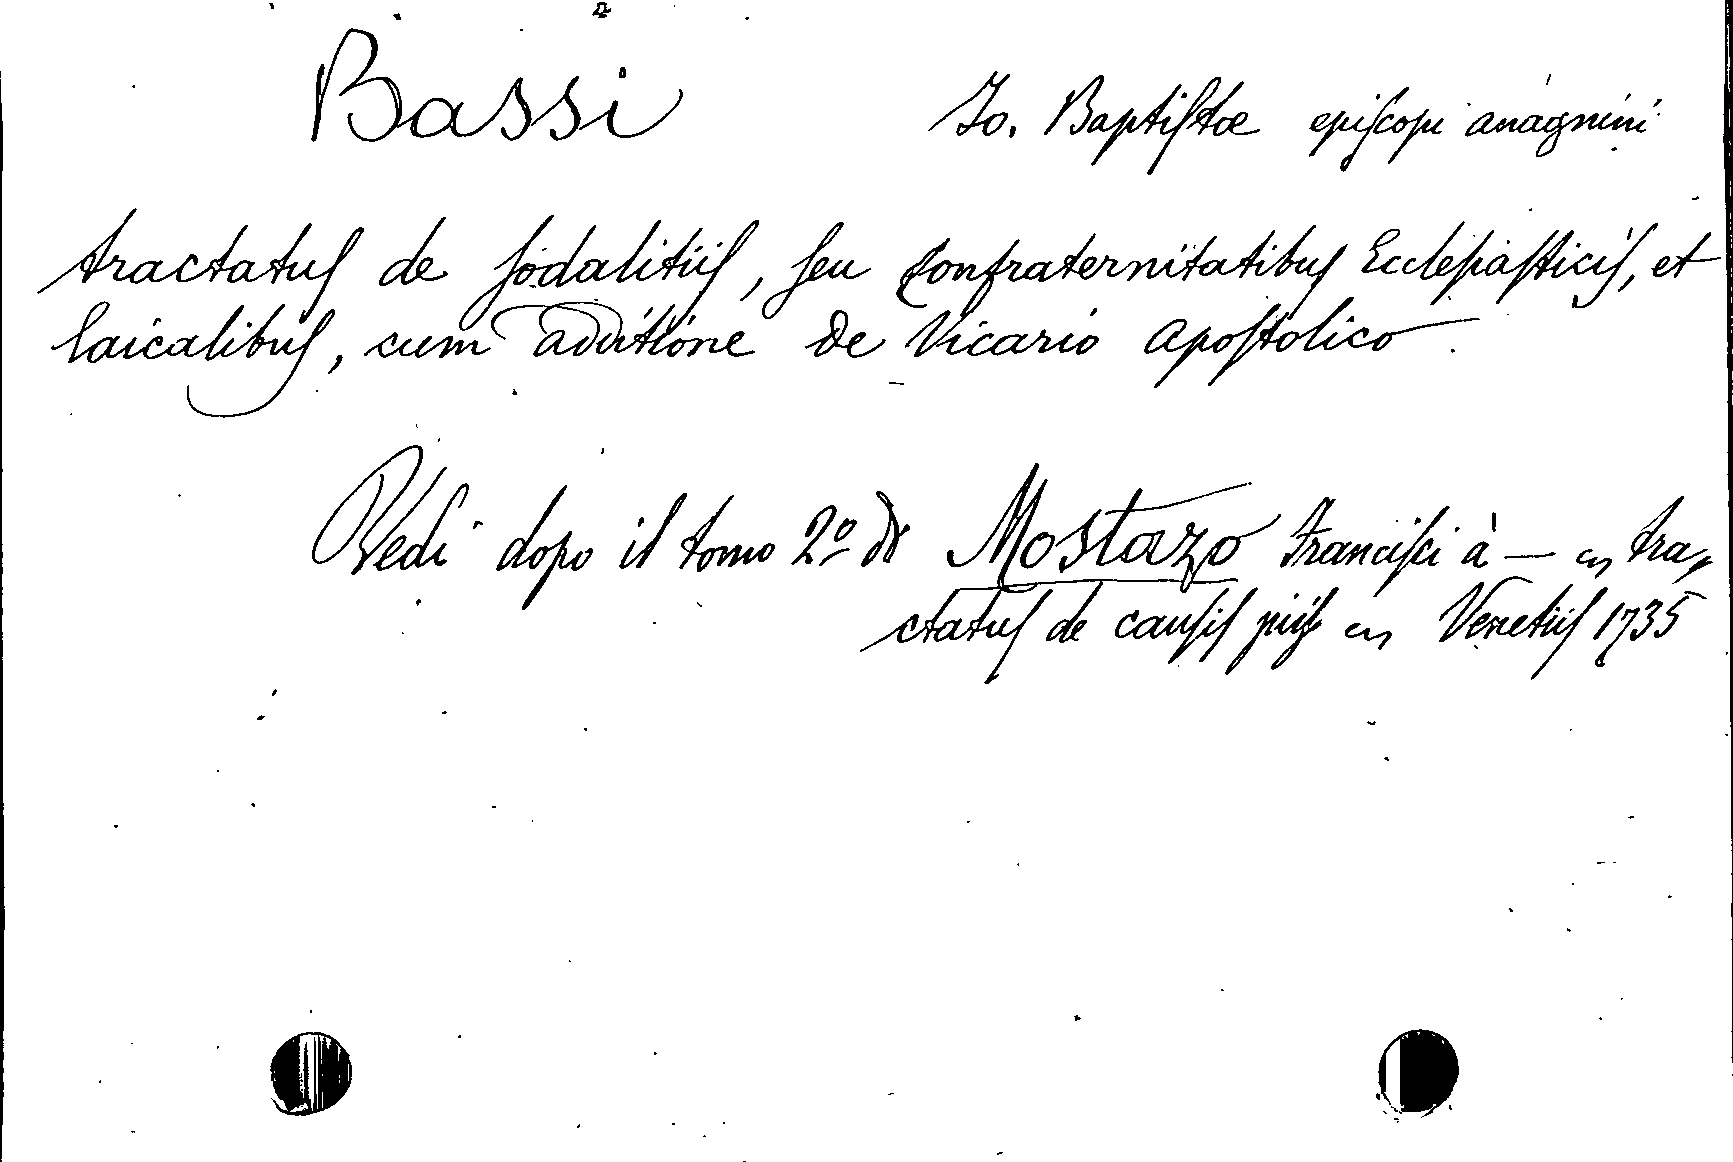 Bassi Jo. Baptistæ episcopi anagnini
tractatus de sodalitiis, seu confraternitatibus Ecclesiasticis, et
laicalibus, cum additione de Vicario Apostolico.
Vedi dopo il tomo 2º di Mostazo Francisci à — tra„
ctatus de causis piis Venetiis 1735